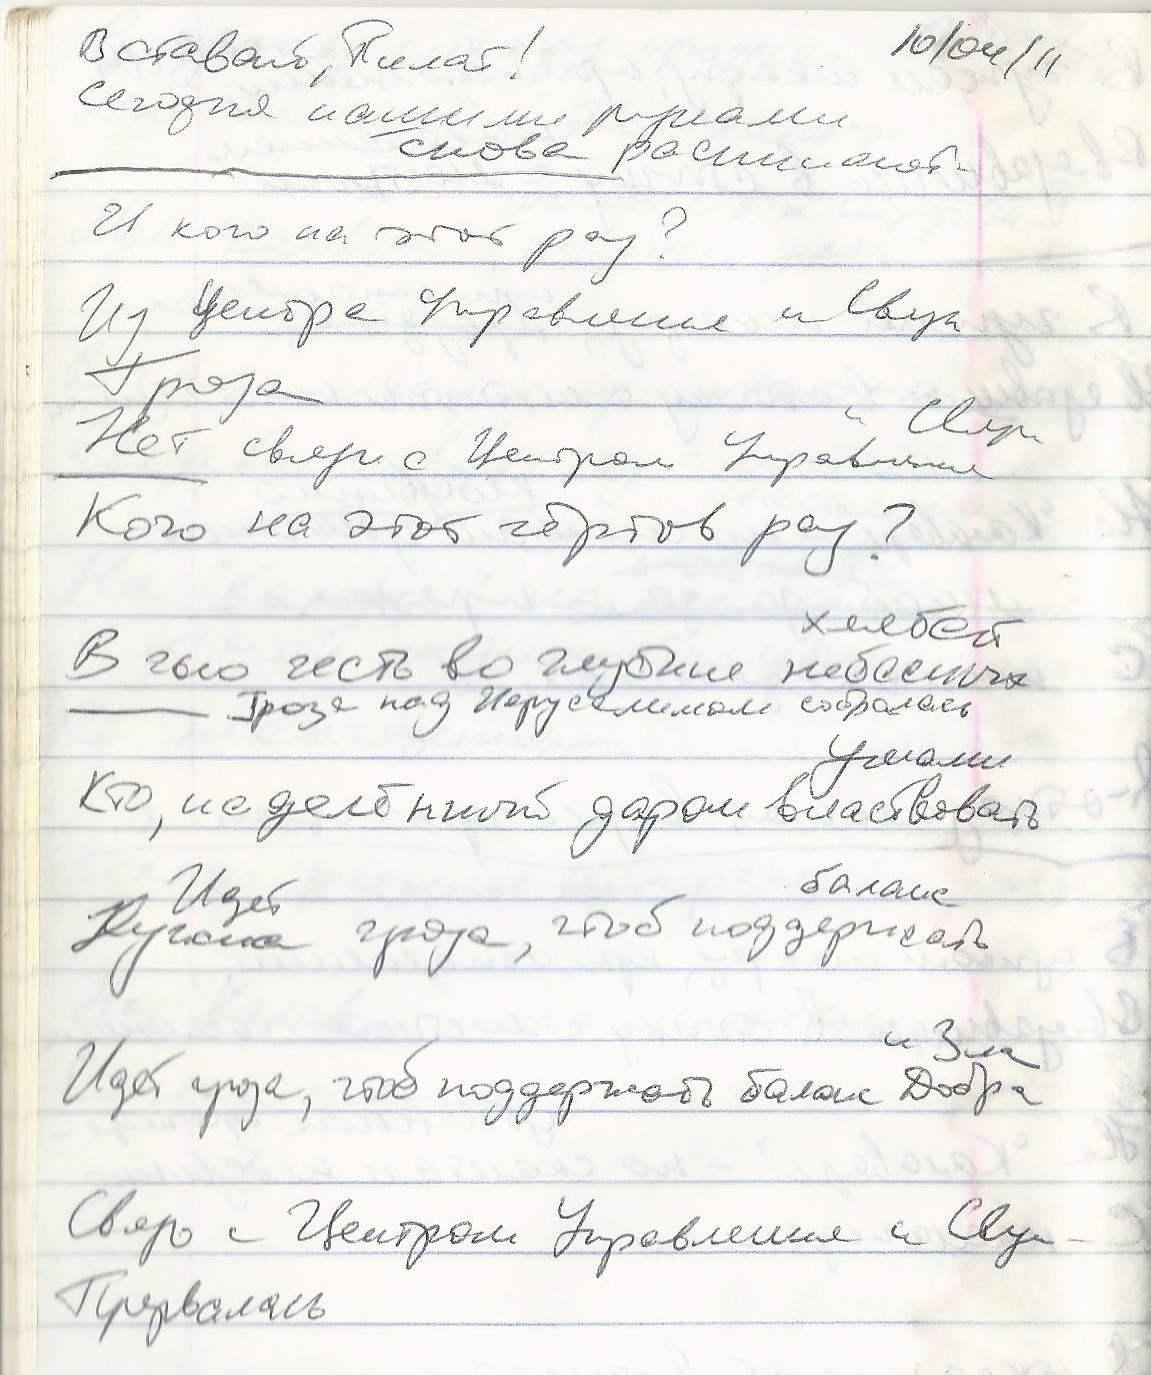 Вставай, Пилат! 10/04/11
Сегодня нашими руками
снова распинают
И кого на этот раз?
Из Центра Управления и Связи
Гроза
и Связи
Нет связи с Центром Управления
Кого на этот чёртов раз?
хлебей
В чью честь во глубине небесных
Гроза над Иерусалимом собралась
Умами
Кто, наделённый даром властвовать
Идёт баланс
Нужна гроза, чтоб поддержать
и Зла
Идёт гроза, чтоб поддержать баланс Добра
Связь с Центром Управления и Связи
Прервалась